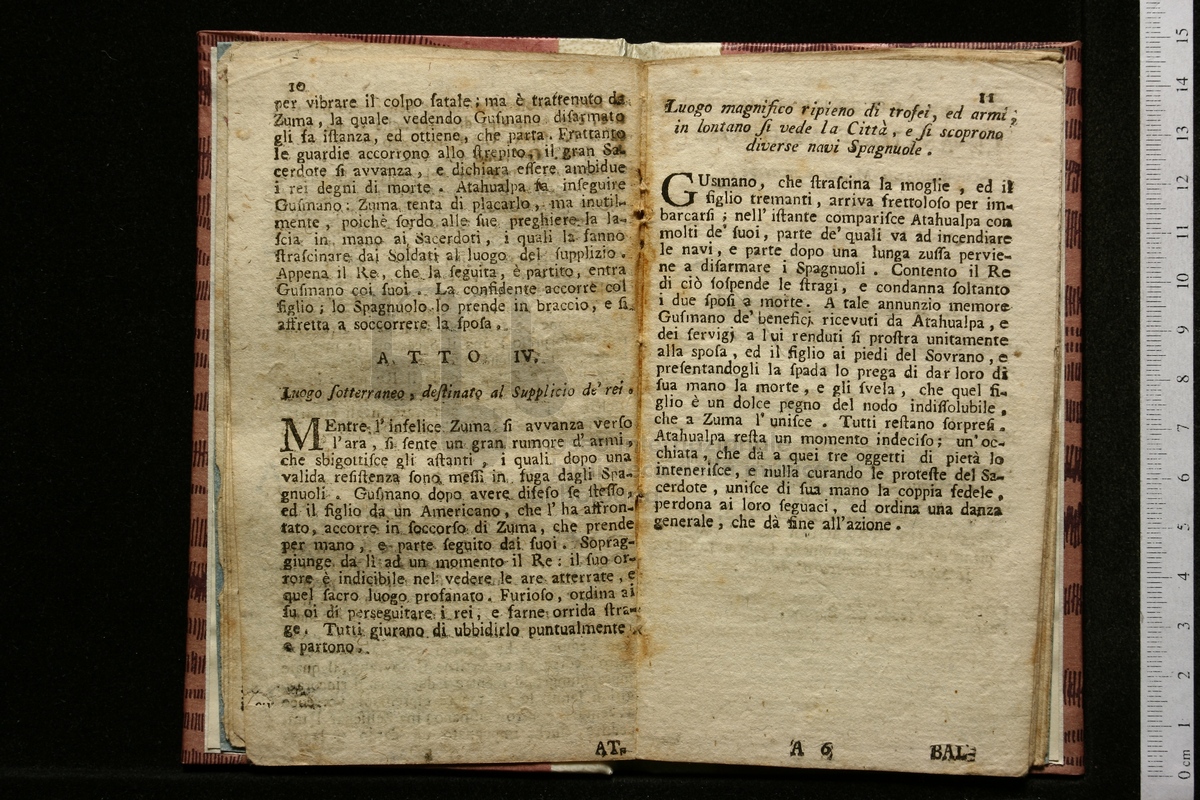 10
per vibrare il colpo fatale; ma è trattenuto da
Zuma, la quale vedendo Guſmano diſarmato
gli fa iſtanza, ed ottiene, che parta. Frattanto
le guardie accorrono allo ſtrepito, il gran Sa-
cerdote ſi avvanza, e dichiara eſſere ambidue
i rei degni di morte. Atahualpa fa inſeguire
Guſmano: Zuma tenta di placarlo, ma inutil-
mente, poichè ſordo alle ſue preghiere la la-
ſcia in mano ai Sacerdoti, i quali la fanno
ſtraſcinare dai Soldati al luogo del ſupplizio.
Appena il Re, che la ſeguita, è partito, entra
Guſmano coi ſuoi. La confidente accorre col
figlio; lo Spagnuolo lo prende in braccio, e ſi
affretta a ſoccorrere la ſpoſa.
ATTO IV.
Luogo ſotterraneo, deſtinato al Supplicio de' rei.
MEntre l' infelice Zuma ſi avvanza verſo
l' ara, ſi ſente un gran rumore d' armi,
che sbigottiſce gli aſtanti, i quali dopo una
valida reſiſtenza ſono meſſi in fuga dagli Spa-
gnuoli. Guſmano dopo avere difeſo ſe ſteſſo,
ed il figlio da un Americano, che l' ha affron-
tato, accorre in ſoccorſo di Zuma, che prende
per mano, e parte ſeguito dai ſuoi. Soprag-
giunge da lì ad un momento il Re: il ſuo or-
rore è indicibile nel vedere le are atterrate, e
quel ſacro luogo profanato. Furioſo, ordina ai
ſuoi di perſeguitare i rei, e farne orrida ſtra-
ge. Tutti giurano di ubbidirlo puntualmente
e partono.
AT-
11
Luogo magnifico ripieno di trofei, ed armi;
in lontano ſi vede la Città, e ſi scoprono
diverse navi Spagnuole.
GUsmano, che ſtraſcina la moglie, ed il
figlio tremanti, arriva frettoloſo per im-
barcarſi; nell' iſtante compariſce Atahualpa con
molti de' ſuoi, parte de' quali va ad incendiare
le navi, e parte dopo una lunga zuffa pervie-
ne a diſarmare i Spagnuoli. Contento il Re
di ciò ſoſpende le ſtragi, e condanna ſoltanto
i due ſpoſi a morte. A tale annunzio memore
Guſmano de' beneficj ricevuti da Atahualpa, e
dei ſervigj a lui renduti ſi proſtra unitamente
alla ſpoſa, ed il figlio ai piedi del Sovrano, e
preſentandogli la ſpada lo prega di dar loro di
ſua mano la morte, e gli ſvela, che quel fi-
glio è un dolce pegno del nodo indiſſolubile,
che a Zuma l' uniſce. Tutti reſtano ſorpreſi.
Atahualpa reſta un momento indeciſo; un' oc-
chiata, che dà a quei tre oggetti di pietà lo
inteneriſce, e nulla curando le proteſte del Sa-
cerdote, uniſce di ſua mano la coppia fedele,
perdona ai loro ſeguaci, ed ordina una danza
generale, che dà fine all'azione.
A 6
BAL-